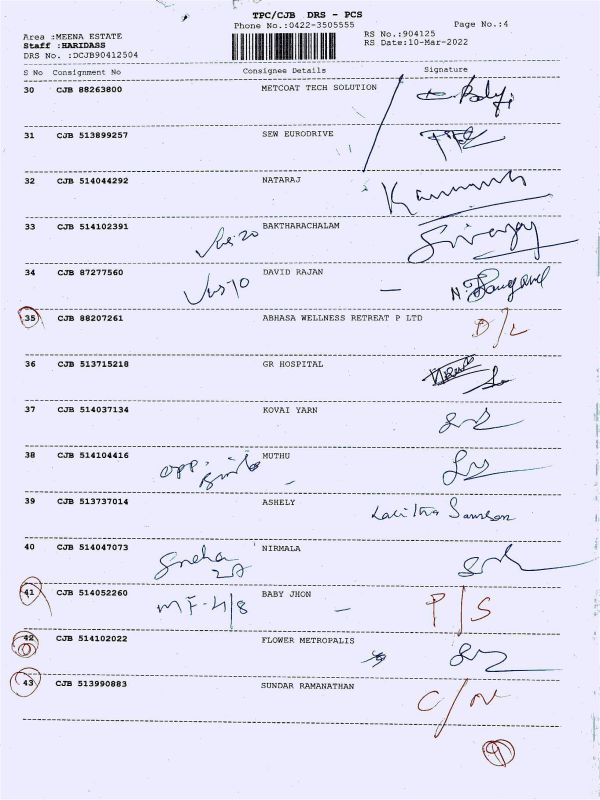 TPC/CJB DRS - PCS
Phone No.:0422-3505555
Page No.:4
Area :MEENA ESTATE
RS No.:904125
Staff :HARIDASS
RS Date:10-Mar-2022
DRS No. :DCJB90412504
S No Consignment No Consignee Details Signature
30 CJB 88263800 METCOAT TECH SOLUTION
31 CJB 513899257 SEW EURODRIVE
32 CJB 514044292 NATARAJ
33 CJB 514102391 BAKTHARACHALAM
34 CJB 87277560 DAVID RAJAN
35 CJB 88207261 ABHASA WELLNESS RETREAT P LTD D/L
36 CJB 513715218 GR HOSPITAL
37 CJB 514037134 KOVAI YARN
38 CJB 514104416 MUTHU
opp.
39 CJB 513737014 ASHELY
40 CJB 514047073 NIRMALA
Sneha
41 CJB 514052260 BABY JHON P/S
MF-4/8
42 CJB 514102022 FLOWER METROPALIS
43 CJB 513990883 SUNDAR RAMANATHAN C/N